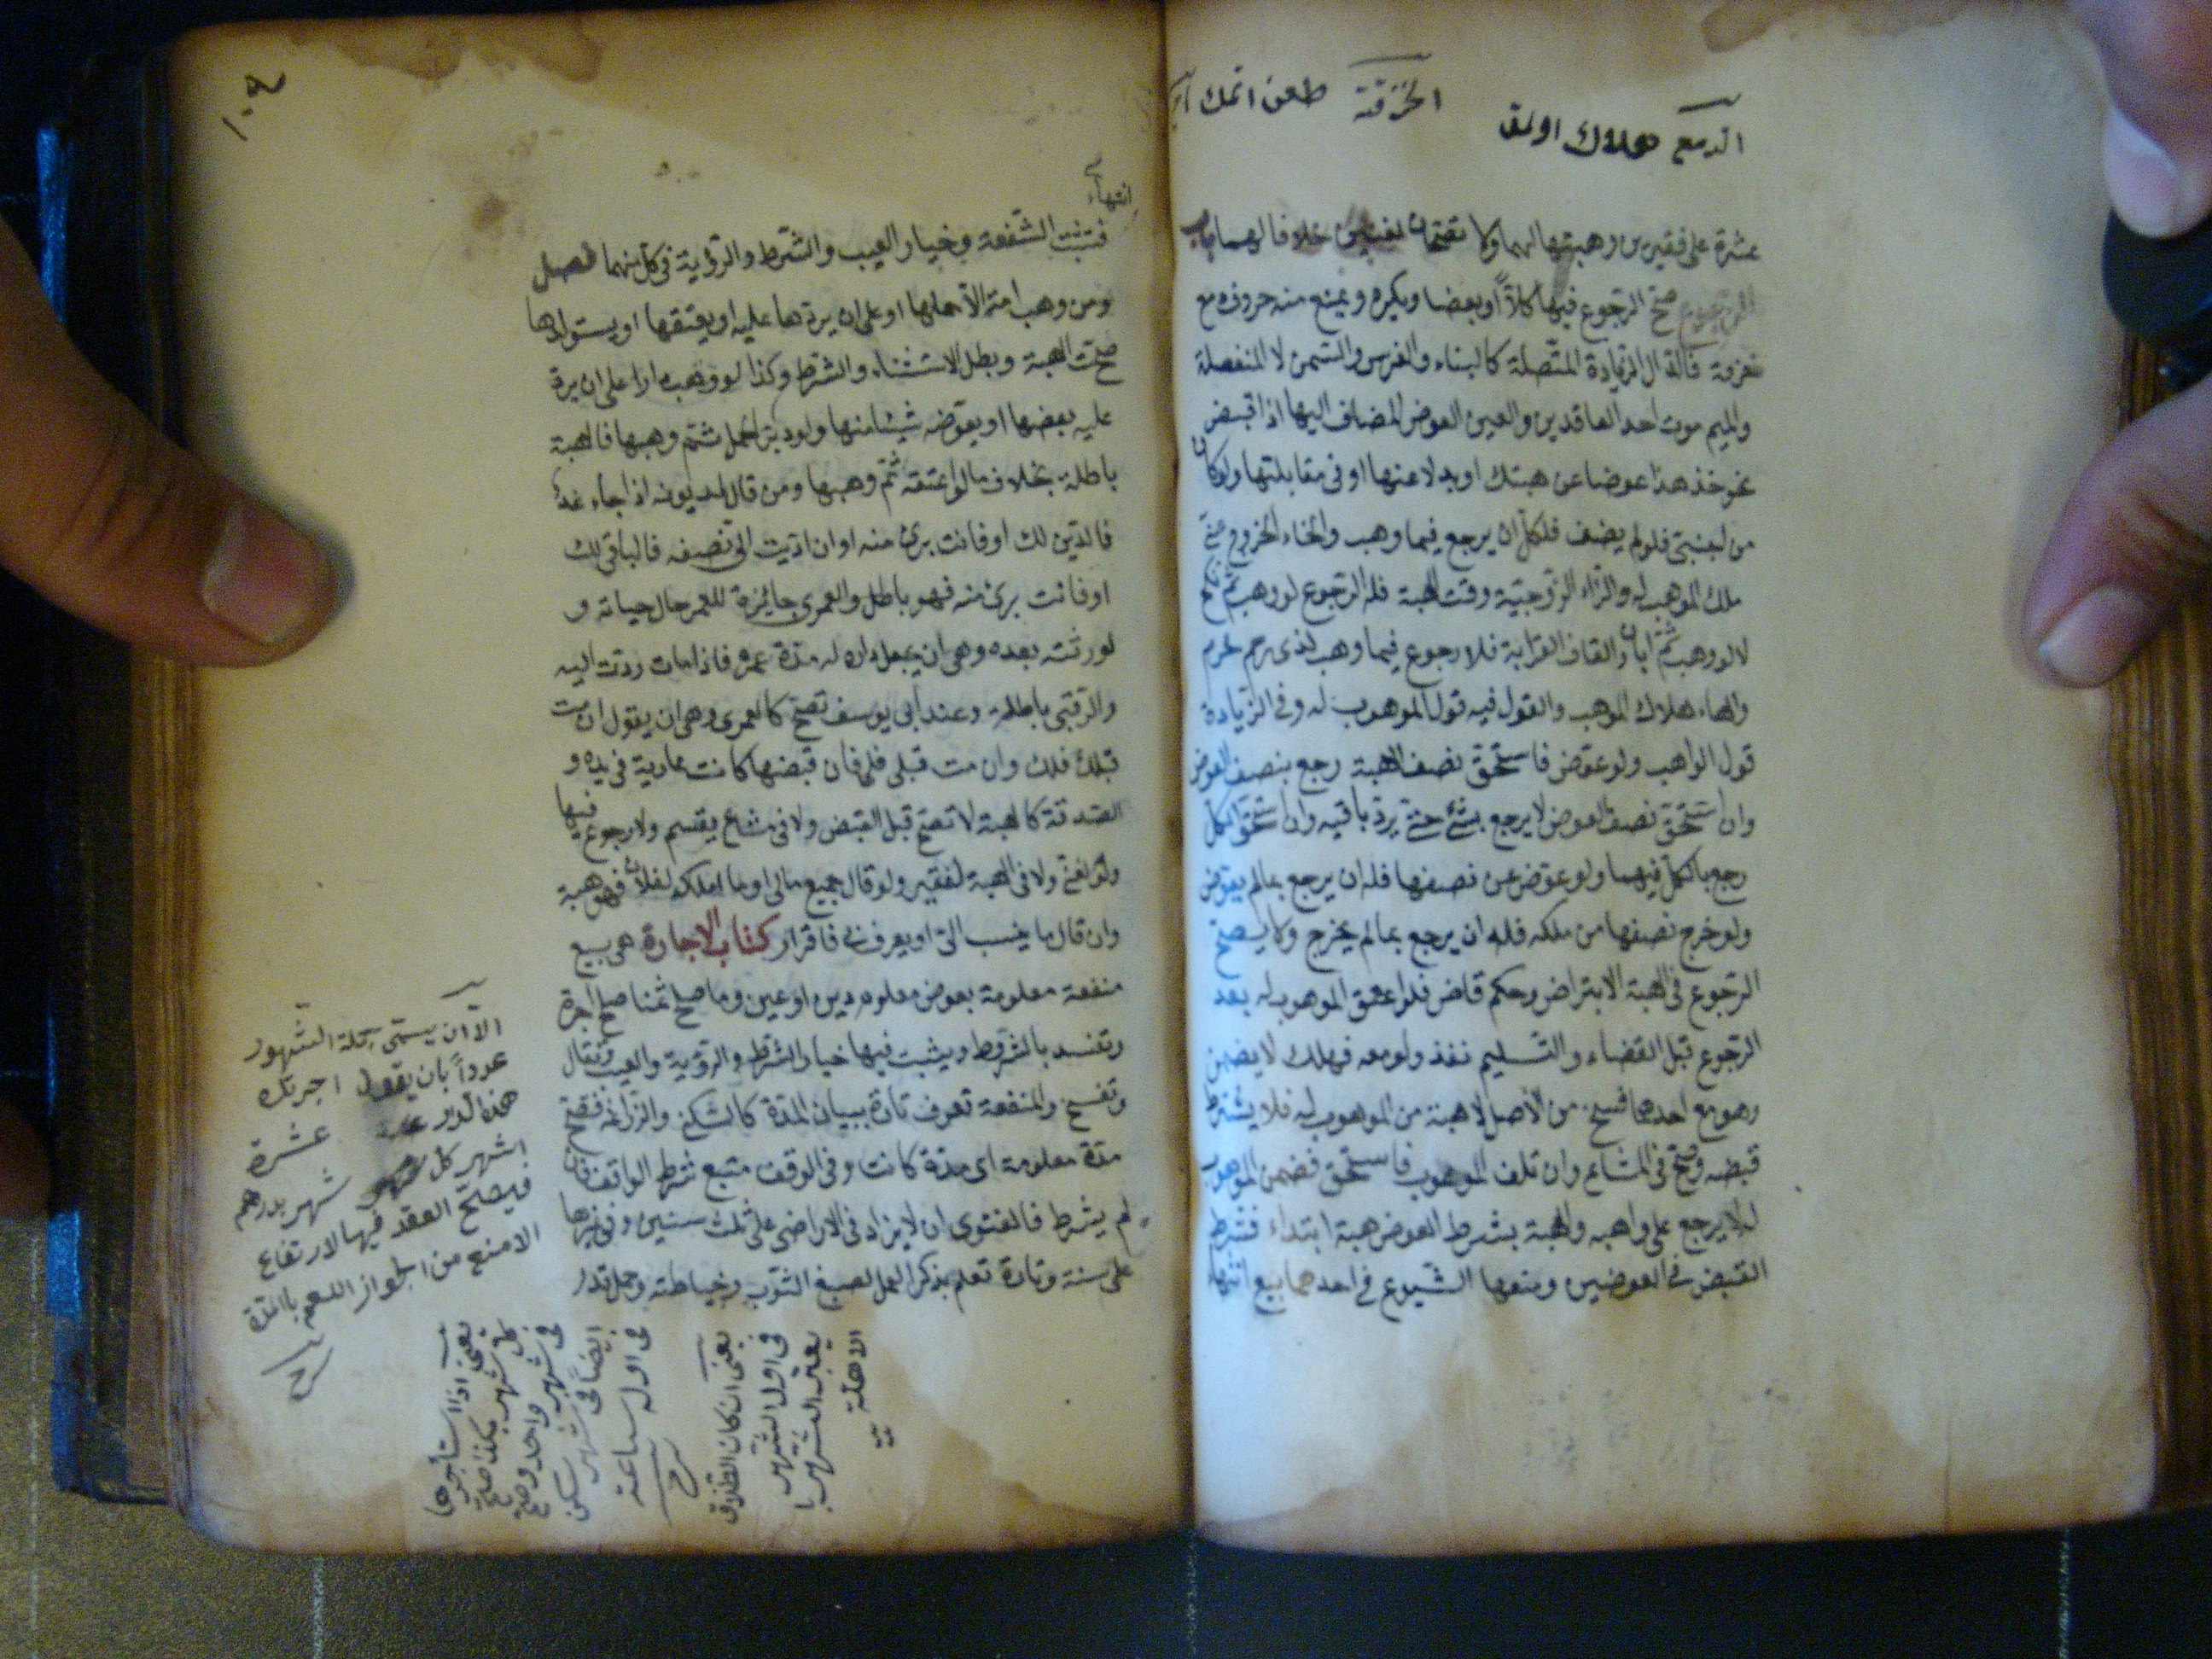 الدمع هلاك اولمق
الخزقة طعن اتمك
عشرة على فقيرين وهبتها لهما ولا تصحان لغنيين خلافا لهما باب
الرجوع صح الرجوع فيها كلاً او بعضا ويكره ويمنع منه حروف دمع
خزقة فالدال الزيادة المتصلة كالبناء والغرس والسمن لا المنفصلة
والميم موت احد العاقدين والعين العوض المضاف اليها اذا قبض
نحو خذ هذا عوضا عن هبتك او بدلا عنها او في مقابلتها ولو كان
من اجنبى فلو لم يضف فلكل ان يرجع فيما وهب والخاء الخروج عن
ملك الموهب له والزاء الزوجية وقت الهبة فله الرجوع لو وهب ثم نكح
لا لو وهب ثم ابان والقاف القرابة فلا رجوع فيما وهب لذى رحم محرم
والهاء هلاك الموهب والقول فيه قول الموهوب له وفي الزيادة
قول الواهب ولو عوض فاستحق نصف الهبة رجع بنصف العوض
وان استحق نصف العوض لا يرجع بشئ حتى يرد باقيه وان استحق الكل
رجع بالكل فيهما ولو عوض عن نصفها فله ان يرجع بما لم يعوض
ولو خرج نصفها من ملكه فله ان يرجع بما لم يخرج ولا يصح
الرجوع فى الهبة الا بتراض وحكم قاض فلو اعتق الموهوب له بعد
الرجوع قبل القضاء والتسليم نفذ ولو منعه فهلك لا يضمن
وهو مع احدهما فسخ من الاصل لا هبة من الموهوب له فلا يشترط
قبضه وصح فى المشاع وان تلف الموهوب فاستحق فضمن الموهوب
له لا يرجع على واهبه والهبة بشرط العوض هبة ابتداء فشرط
القبض فى العوضين ومنعها الشيوع فى احدهما بيع انتهاء
انتهاء
فتثبت الشفعة وخيار العيب والشرط والرؤية فى كل منهما فصل
ومن وهب امة الا حملها او على ان يردها عليه او يعتقها او يستولدها
صحت الهبة وبطل الاستثناء والشرط وكذا لو وهب دارا على ان يرد
عليه بعضها او يعوضه شيئا منها ولو دبر الحمل ثم وهبها فالهبة
باطلة بخلاف ما لو اعتقه ثم وهبها ومن قال لمديونه اذا جاء غد
فالدين لك او فانت برئ منه او ان اديت الى نصفه فالباقى لك
او فانت برئ منه فهو باطل والعمرى جائزة للمعمر حال حياته و
لورثته بعده وهى ان يجعل داره له مدة عمره فاذا مات ردت اليه
والرقبى باطلة وعند ابى يوسف تصح كالعمرى وهى ان يقول ان مت
قبلك فلك وان مت قبلى فلى فان قبضها كانت عارية فى يده و
الصدقة كالهبة لا تصح قبل القبض ولا فى مشاع يقسم ولا رجوع فيها
ولو لغنى ولا فى الهبة لفقير ولو قال جميع مالى او ما املكه لفلان فهو هبة
وان قال ما ينسب الى او يعرف بى فاقرار كتاب الاجارة هى بيع
منفعة معلومة بعوض معلوم دين او عين وما صلح ثمنا صلح اجرة
وتفسد بالشروط ويثبت فيها خيار الشرط والرؤية والعيب وتقال
وتفسخ والمنفعة تعرف تارة ببيان المدة كالسكنى والزراعة فتصح
مدة معلومة اى مدة كانت وفى الوقف متبع شرط الواقف فان
لم يشرط فالفتوى ان لا يزاد فى الاراضى على ثلث سنين وفى غيرها
على سنة وتارة تعلم بذكر العمل لصبغ الثوب وخياطته وحمل قدر
الا ان يسمى جملة الشهور
عددا بان يقول اجرتك
هذه الدار عشرة
اشهر كل شهر بدرهم
فيصلح العقد فيها لارتفاع
الامنع من الجواز للعم بالمدة
شرح
يعنى اذا استأجرها
كل شهر بكذا صح
فى شهر واحد وصح
ايضا فى شهر سكن
فى اوله ساعة
شرح
يعنى ان كان الطلاق
فى اول الشهر
يعتبر الشهر با
الاهلة